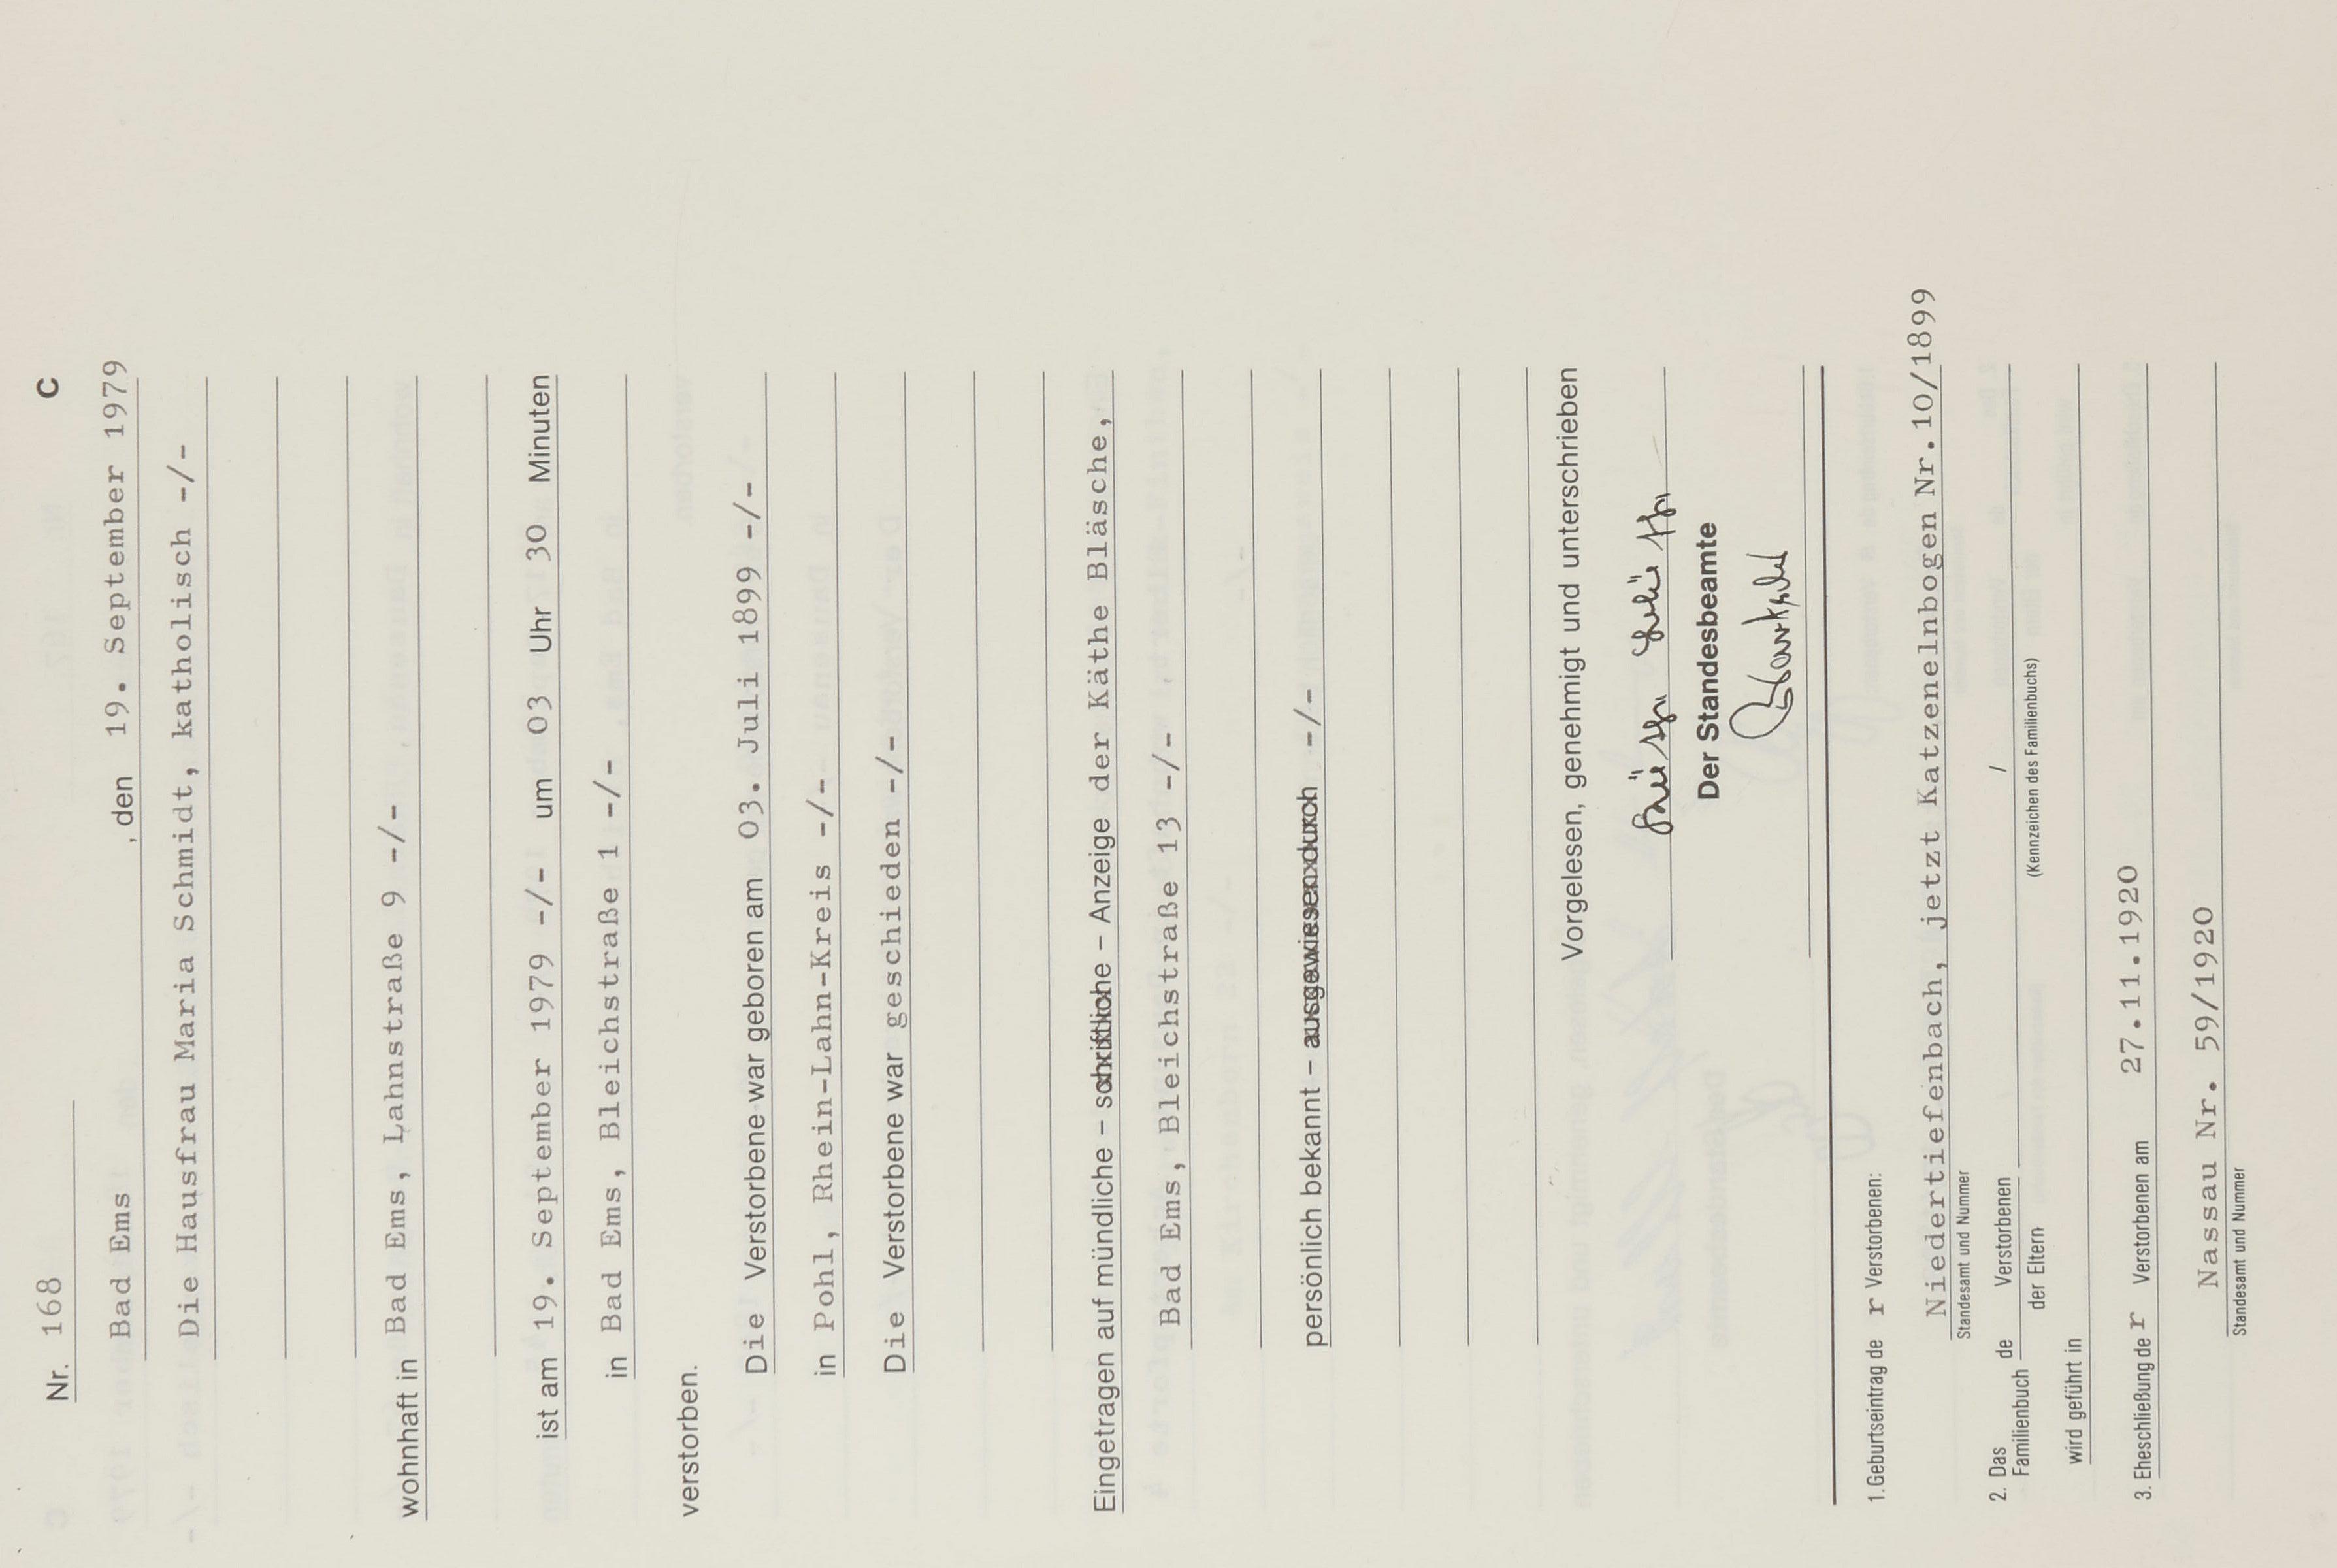 Nr. 168 C
Bad Ems , den 19. September 1979
Die Hausfrau Maria Schmidt, katholisch -/-
wohnhaft in Bad Ems, Lahnstraße 9 -/-
ist am 19. September 1979 -/- um 03 Uhr 30 Minuten
in Bad Ems, Bleichstraße 1 -/-
verstorben.
Die Verstorbene war geboren am 03. Juli 1899 -/-
in Pohl, Rhein-Lahn-Kreis -/-
Die Verstorbene war geschieden -/-
Eingetragen auf mündliche – schriftliche – Anzeige der Käthe Bläsche,
Bad Ems, Bleichstraße 13 -/-
persönlich bekannt – ausgewiesen durch -/-
Vorgelesen, genehmigt und unterschrieben
Der Standesbeamte
1. Geburtseintrag de r Verstorbenen:
Niedertiefenbach, jetzt Katzenelnbogen Nr.10/1899
Standesamt und Nummer
2. Das Familienbuch de Verstorbenen /
der Eltern (Kennzeichen des Familienbuchs)
wird geführt in
3. Eheschließung de r Verstorbenen am 27.11.1920
Nassau Nr. 59/1920
Standesamt und Nummer